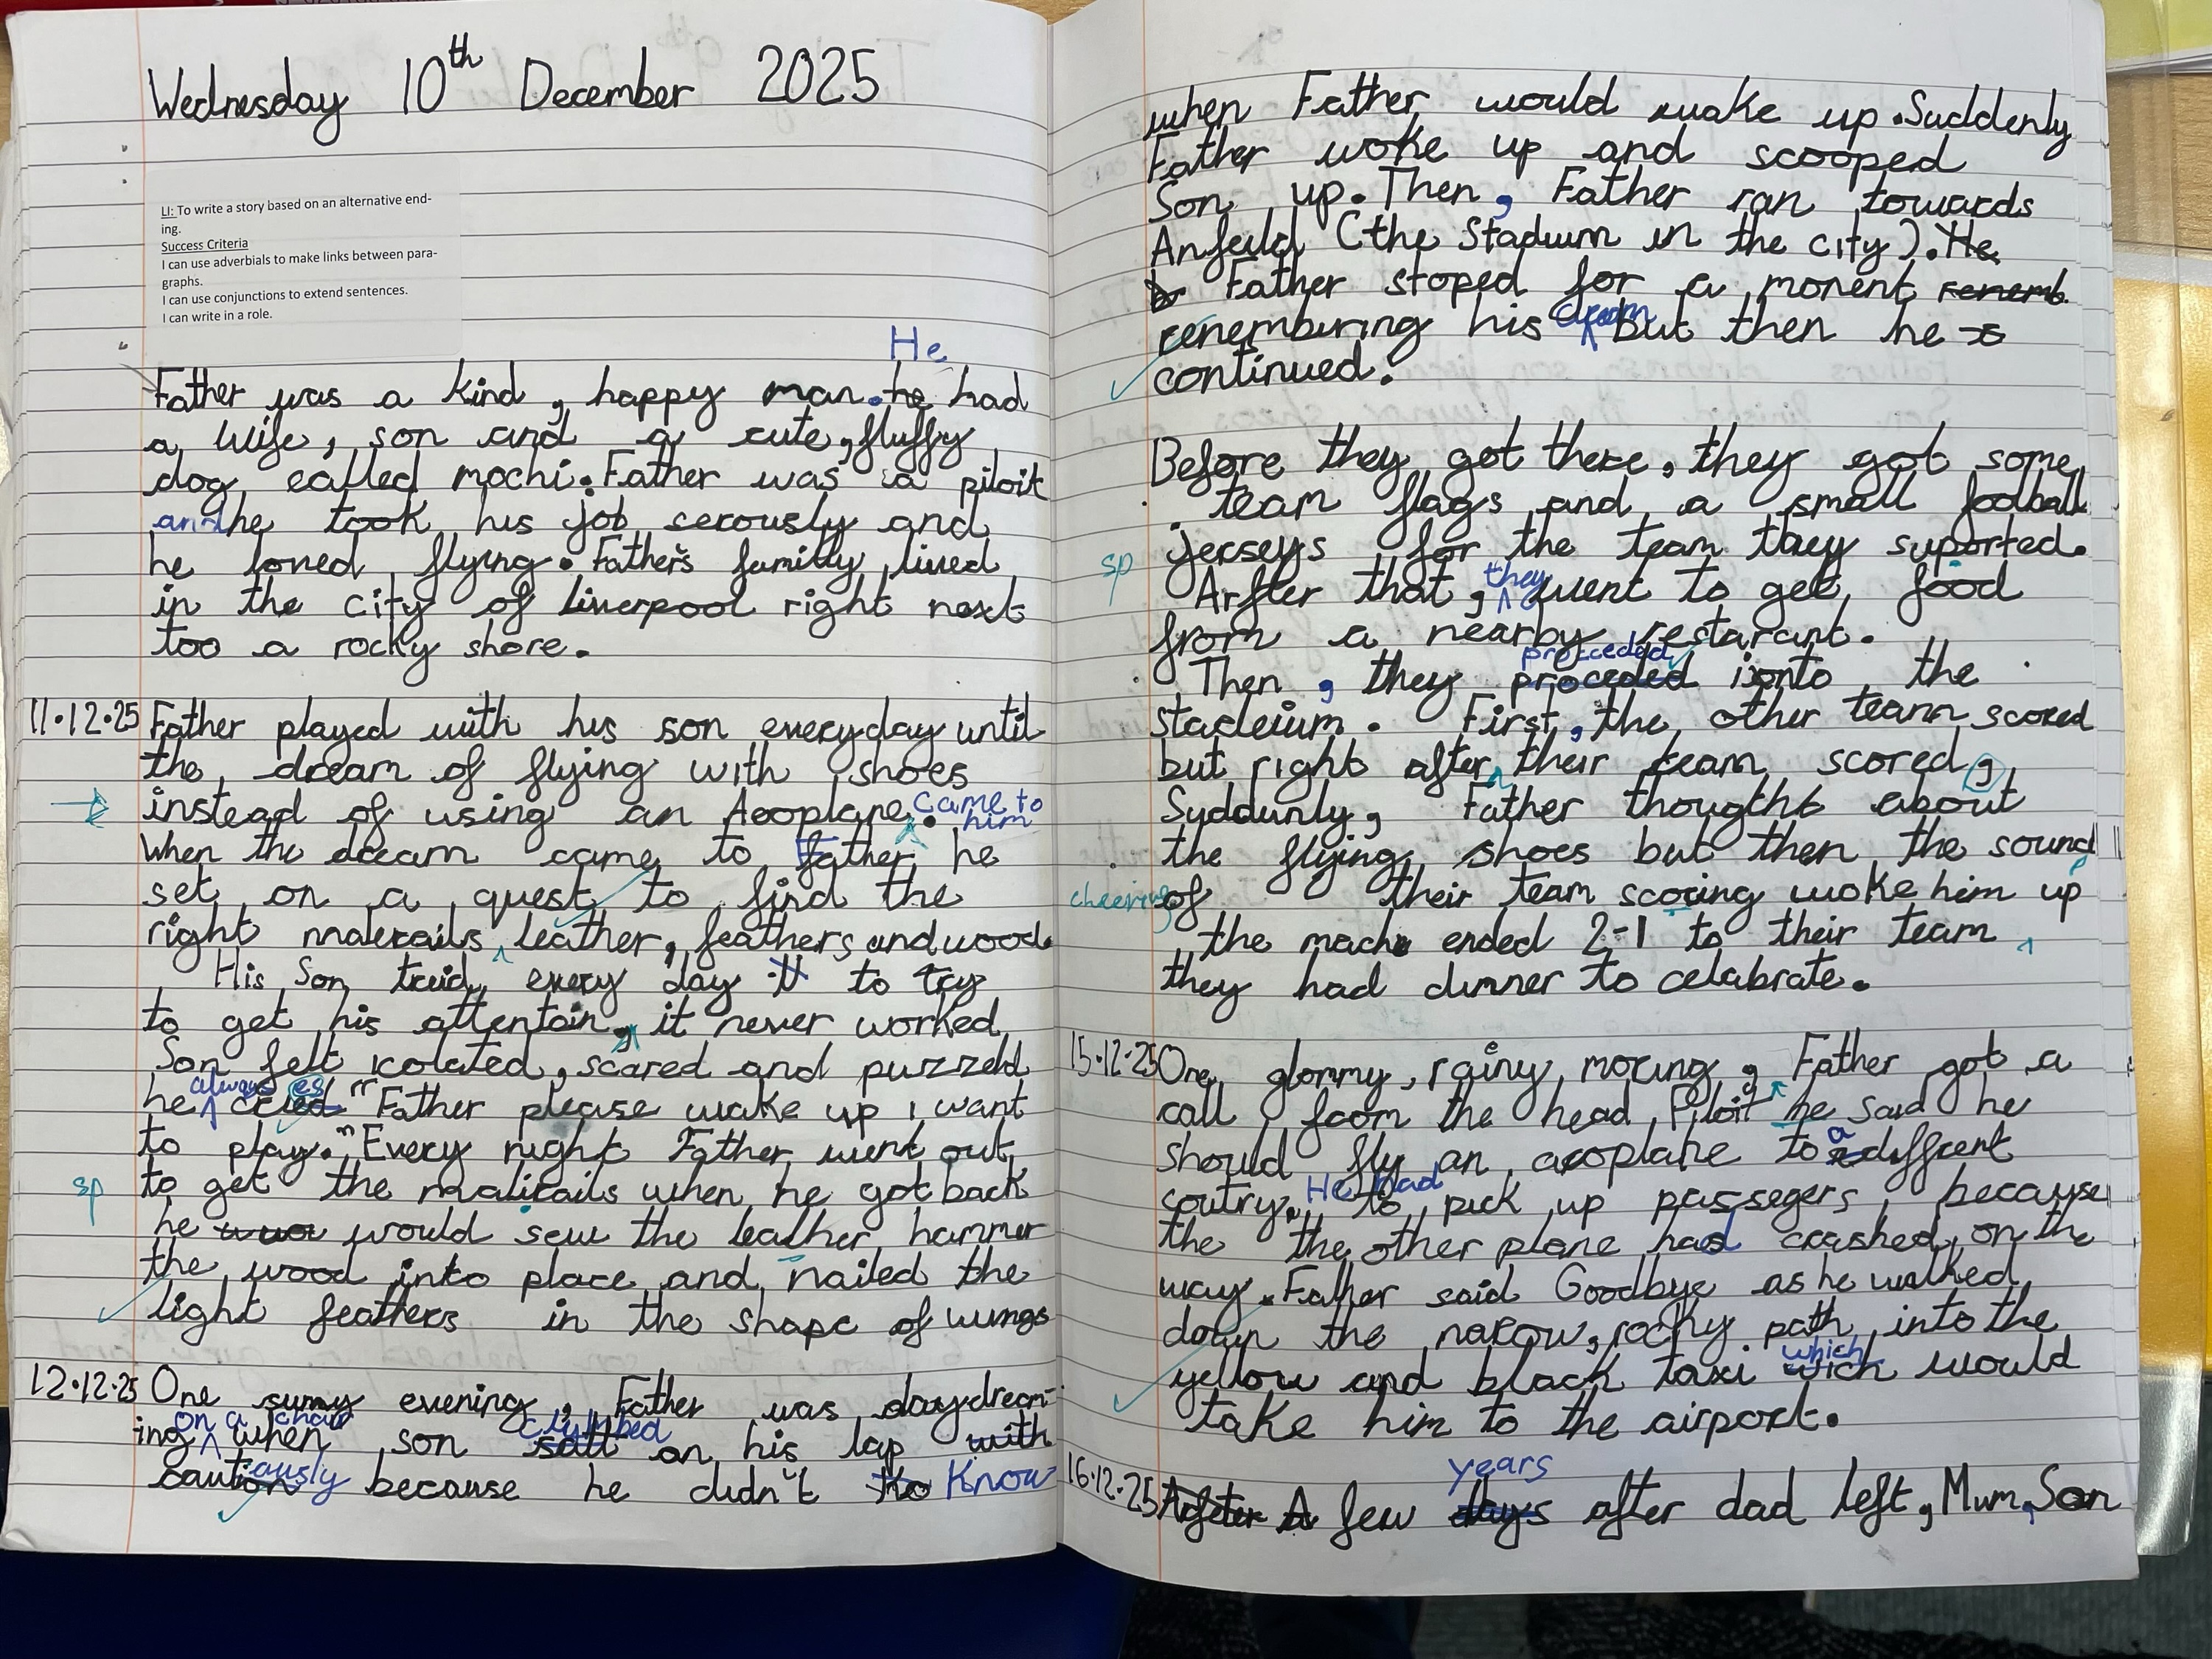 Wednesday 10th December 2025
LI: To write a story based on an alternative end-
ing.
Success Criteria
I can use adverbials to make links between para-
graphs.
I can use conjunctions to extend sentences.
I can write in a role.
He
Father was a kind, happy man. he had
a wife, son and a cute, fluffy
dog called mochi. Father was a piloit
and he took his job serously and
he loved flying. Father's familly lived
in the city of liverpool right next
too a rocky shore.
11.12.25 Father played with his son everyday until
the dream of flying with shoes
instead of using an Aeoplane came to him.
When the dream came to Father he
set on a quest to find the
right materails leather, feathers and wood.
His Son treid every day to try
to get his attentain, it never worked
Son felt isolated, scared and puzzeld
he always cries "Father please wake up i want
to play." Every night Father went out
sp to get the matirails when he got back
he would sew the leather hammer
the wood into place and nailed the
light feathers in the shape of wings
12.12.25 One sunny evening, Father was daydream-
ing on a chair when son climbed on his lap
cautiously because he didn't know
when Father would wake up. Suddenly
Father woke up and scooped
Son up. Then, Father ran towards
Anfeild (the Stadium in the city). He
Father stoped for a monent renemb
renembering his dream but then he
continued.
Before they got there, they got some
team flags and a small foodball
sp jerseys for the team they suported.
Arfter that, they went to get food
from a nearby restarant.
Then, they procceded proceded into the
stadeium. First, the other team scored
but right after their team scored,
Suddunly, Father thought about
the flying shoes but then the sound
cheering of their team scoring woke him up
the mach ended 2-1 to their team
they had dinner to celabrate.
15.12.25 One glommy, rainy morning, Father got a
call from the head Piloit he said he
should fly an aeoplane to a diffrent
coutry. He had to pick up passegers, because
the the other plane had crashed on the
way. Father said Goodbye as he walked
down the narow, rocky path into the
yellow and black taxi which would
take him to the airport.
16.12.25 Arfter A few years after dad left, Mum, Son